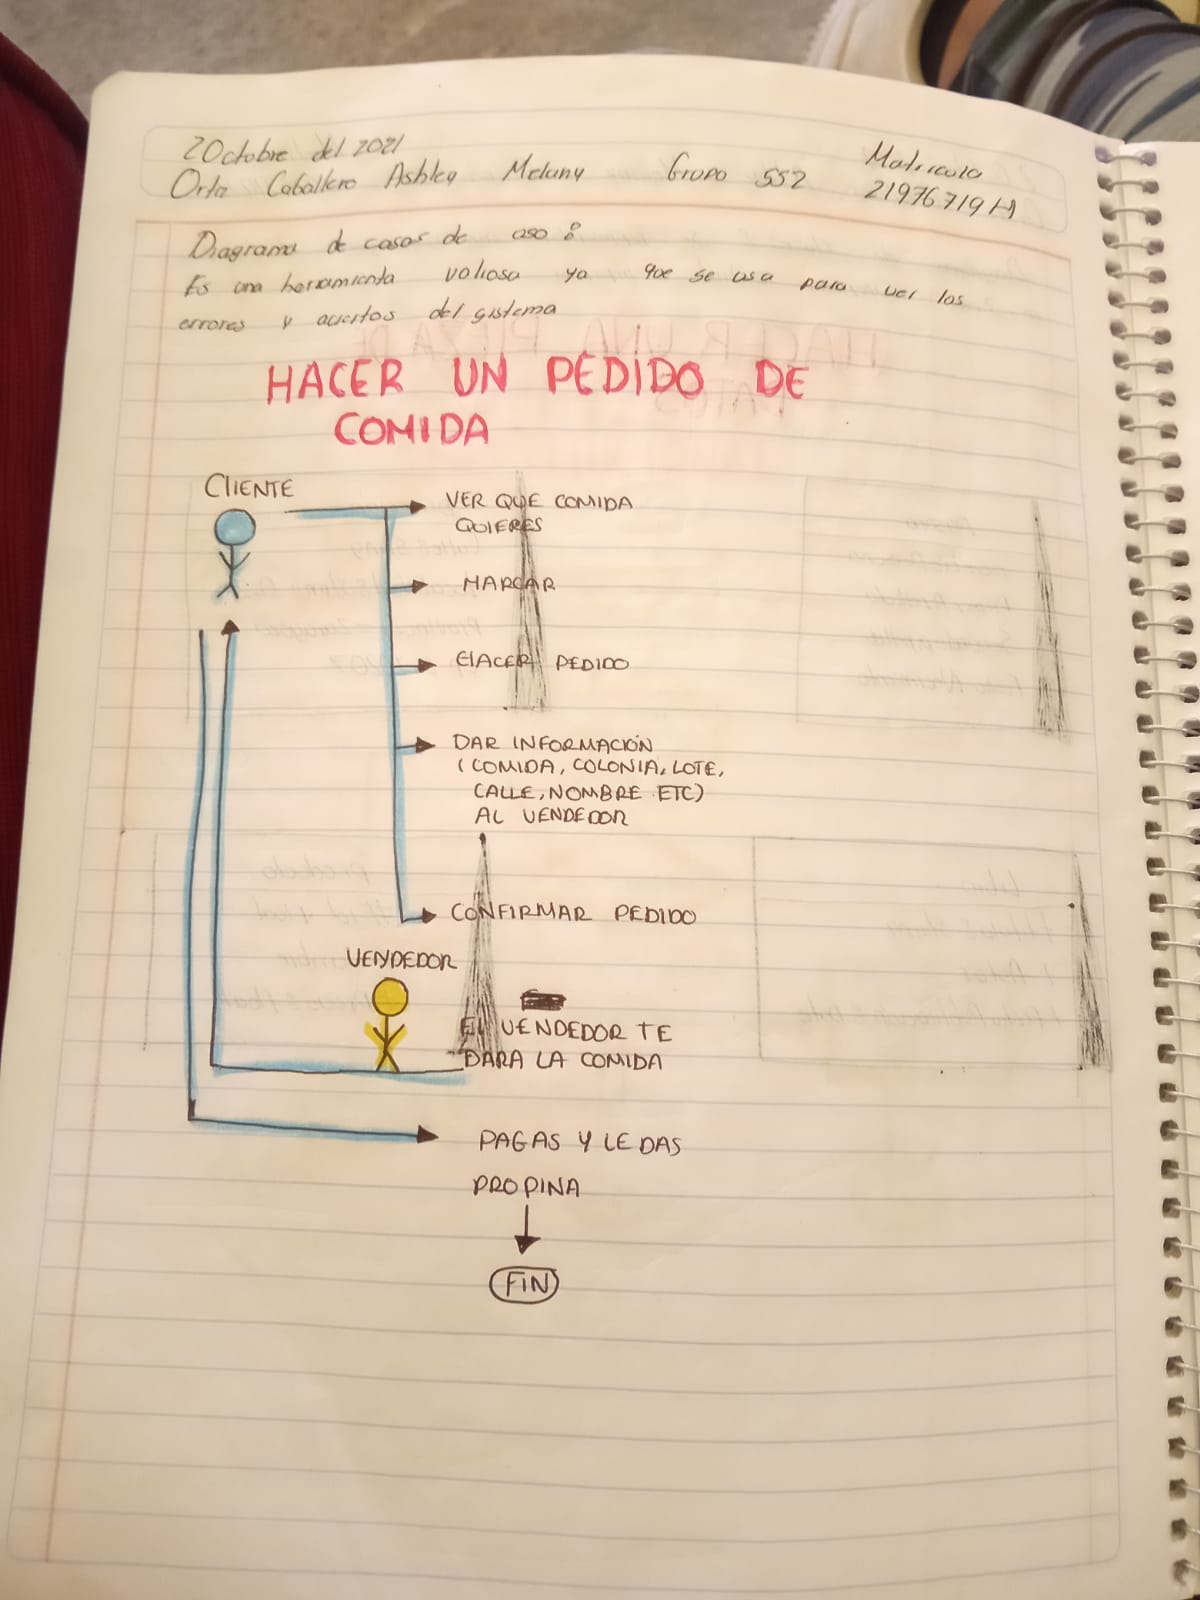 20ctobre del 2021
Orta Caballero Ashley Melany Grupo 552 Matricula
21976719H
Diagrama de casos de uso :
Es una herramienta valiosa ya que se usa para ver los
errores y aciertos del sistema
HACER UN PEDIDO DE
COMIDA
CLIENTE
VER QUE COMIDA
QUIERES
MARCAR
HACER PEDIDO
DAR INFORMACIÓN
(COMIDA, COLONIA, LOTE,
CALLE, NOMBRE ETC)
AL VENDEDOR
CONFIRMAR PEDIDO
VENDEDOR
EL VENDEDOR TE
DARA LA COMIDA
PAGAS Y LE DAS
PROPINA
FIN